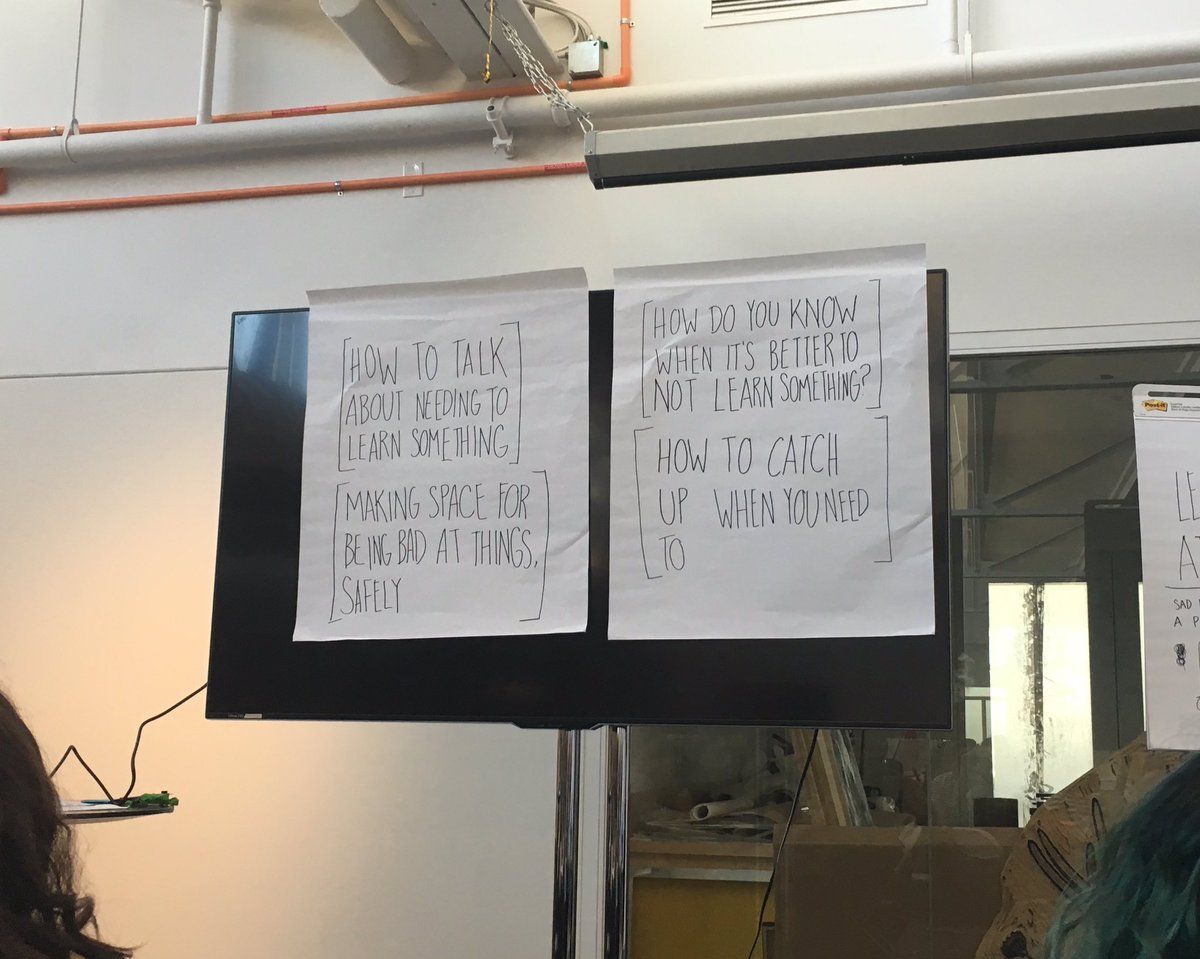 [HOW TO TALK
ABOUT NEEDING TO
LEARN SOMETHING]
[MAKING SPACE FOR
BEING BAD AT THINGS,
SAFELY]
[HOW DO YOU KNOW
WHEN IT'S BETTER TO
NOT LEARN SOMETHING?]
[HOW TO CATCH
UP WHEN YOU NEED
TO]
Post-it
LE
AT
SAD
A P